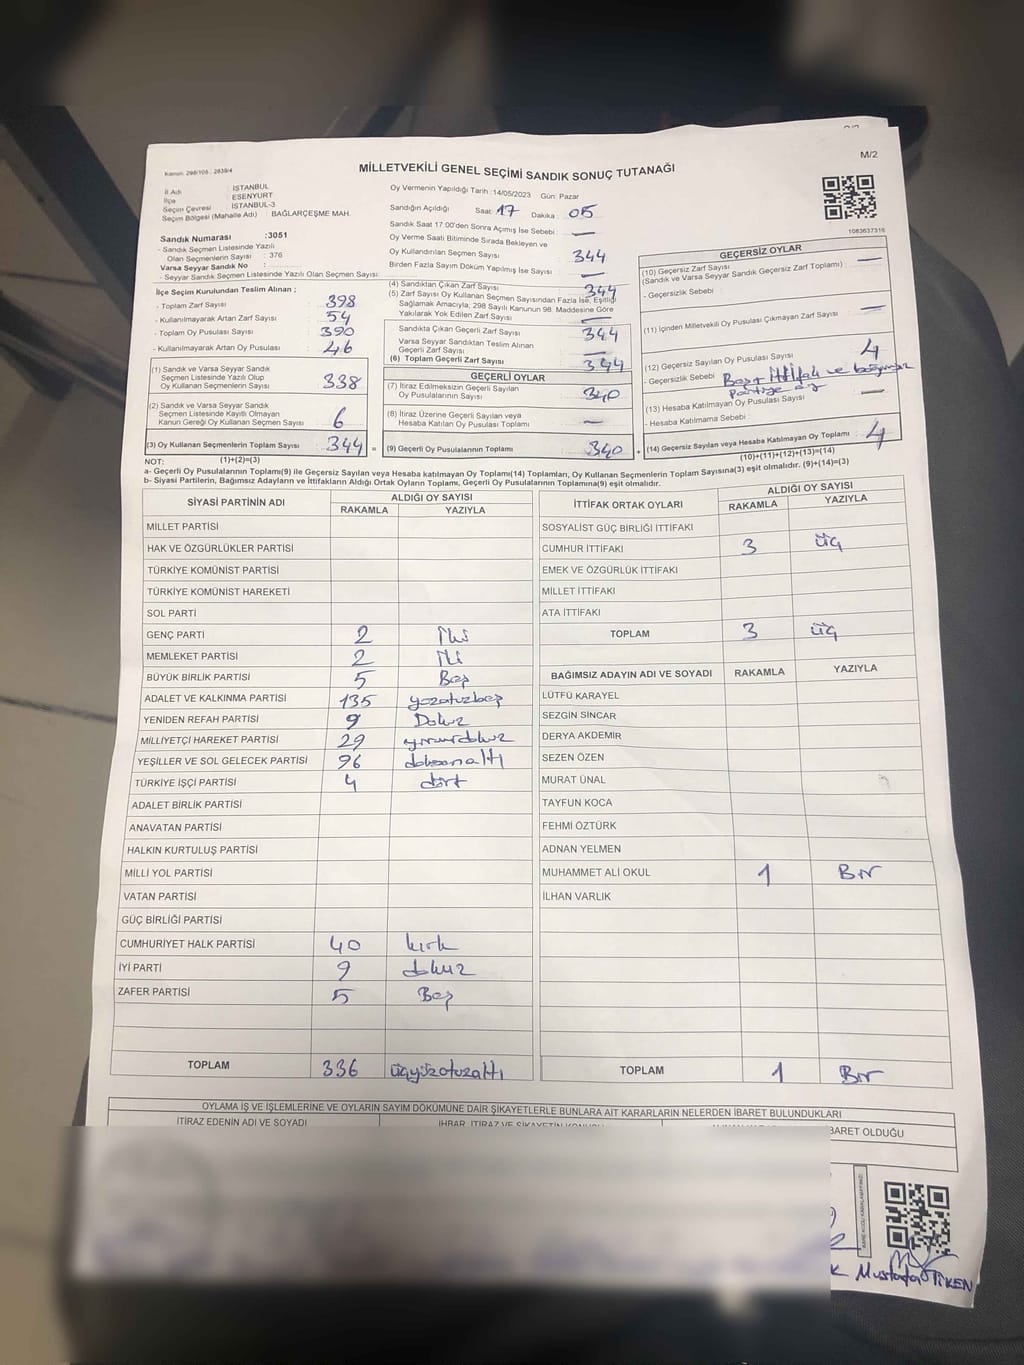 M/2
Kanun: 298/105 : 2839/4
MİLLETVEKİLİ GENEL SEÇİMİ SANDIK SONUÇ TUTANAĞI
İl Adı : İSTANBUL
İlçe : ESENYURT
Seçim Çevresi : İSTANBUL-3
Seçim Bölgesi (Mahalle Adı) : BAĞLARÇEŞME MAH.
Sandık Numarası :3051
- Sandık Seçmen Listesinde Yazılı
Olan Seçmenlerin Sayısı : 376
Varsa Seyyar Sandık No :
- Seyyar Sandık Seçmen Listesinde Yazılı Olan Seçmen Sayısı:
İlçe Seçim Kurulundan Teslim Alınan ;
- Toplam Zarf Sayısı : 398
- Kullanılmayarak Artan Zarf Sayısı : 54
- Toplam Oy Pusulası Sayısı : 390
- Kullanılmayarak Artan Oy Pusulası : 46
(1) Sandık ve Varsa Seyyar Sandık
Seçmen Listesinde Yazılı Olup
Oy Kullanan Seçmenlerin Sayısı : 338
(2) Sandık ve Varsa Seyyar Sandık
Seçmen Listesinde Kayıtlı Olmayan
Kanun Gereği Oy Kullanan Seçmen Sayısı : 6
(3) Oy Kullanan Seçmenlerin Toplam Sayısı : 344 =
(1)+(2)=(3)
Oy Vermenin Yapıldığı Tarih :14/05/2023 Gün: Pazar
Sandığın Açıldığı Saat: 17 Dakika : 05
Sandık Saat 17:00'den Sonra Açımış İse Sebebi : —
Oy Verme Saati Bitiminde Sırada Bekleyen ve
Oy Kullandırılan Seçmen Sayısı : 344
Birden Fazla Sayım Döküm Yapılmış İse Sayısı : —
(4) Sandıktan Çıkan Zarf Sayısı : 344
(5) Zarf Sayısı Oy Kullanan Seçmen Sayısından Fazla İse, Eşitliği
Sağlamak Amacıyla; 298 Sayılı Kanunun 98. Maddesine Göre
Yakılarak Yok Edilen Zarf Sayısı : —
Sandıkta Çıkan Geçerli Zarf Sayısı : 344
Varsa Seyyar Sandıktan Teslim Alınan
Geçerli Zarf Sayısı : —
(6) Toplam Geçerli Zarf Sayısı : 344
GEÇERLİ OYLAR
(7) İtiraz Edilmeksizin Geçerli Sayılan
Oy Pusulasının Sayısı : 340
(8) İtiraz Üzerine Geçerli Sayılan veya
Hesaba Katılan Oy Pusulası Toplamı : —
(9) Geçerli Oy Pusulalarının Toplamı : 340 +
1083637316
GEÇERSİZ OYLAR
(10) Geçersiz Zarf Sayısı
(Sandık ve Varsa Seyyar Sandık Geçersiz Zarf Toplamı) : —
- Geçersizlik Sebebi :
(11) İçinden Milletvekili Oy Pusulası Çıkmayan Zarf Sayısı : —
(12) Geçersiz Sayılan Oy Pusulası Sayısı : 4
- Geçersizlik Sebebi : ittifak ve bağımsız
partiye oy
(13) Hesaba Katılmayan Oy Pusulası Sayısı : —
- Hesaba Katılmama Sebebi :
(14) Geçersiz Sayılan veya Hesaba Katılmayan Oy Toplamı : 4
(10)+(11)+(12)+(13)=(14)
NOT:
a- Geçerli Oy Pusulalarının Toplamı(9) ile Geçersiz Sayılan veya Hesaba katılmayan Oy Toplamı(14) Toplamları, Oy Kullanan Seçmenlerin Toplam Sayısına(3) eşit olmalıdır. (9)+(14)=(3)
b- Siyasi Partilerin, Bağımsız Adayların ve İttifakların Aldığı Ortak Oyların Toplamı, Geçerli Oy Pusulalarının Toplamına(9) eşit olmalıdır.
SİYASİ PARTİNİN ADI ALDIĞI OY SAYISI
RAKAMLA YAZIYLA
MİLLET PARTİSİ
HAK VE ÖZGÜRLÜKLER PARTİSİ
TÜRKİYE KOMÜNİST PARTİSİ
TÜRKİYE KOMÜNİST HAREKETİ
SOL PARTİ
GENÇ PARTİ 2 İki
MEMLEKET PARTİSİ 2 İki
BÜYÜK BİRLİK PARTİSİ 5 Beş
ADALET VE KALKINMA PARTİSİ 135 yüzotuzbeş
YENİDEN REFAH PARTİSİ 9 Dokuz
MİLLİYETÇİ HAREKET PARTİSİ 29 yirmidokuz
YEŞİLLER VE SOL GELECEK PARTİSİ 96 doksanaltı
TÜRKİYE İŞÇİ PARTİSİ 4 dört
ADALET BİRLİK PARTİSİ
ANAVATAN PARTİSİ
HALKIN KURTULUŞ PARTİSİ
MİLLİ YOL PARTİSİ
VATAN PARTİSİ
GÜÇ BİRLİĞİ PARTİSİ
CUMHURİYET HALK PARTİSİ 40 kırk
İYİ PARTİ 9 dokuz
ZAFER PARTİSİ 5 Beş
TOPLAM 336 üçyüzotuzaltı
İTTİFAK ORTAK OYLARI ALDIĞI OY SAYISI
RAKAMLA YAZIYLA
SOSYALİST GÜÇ BİRLİĞİ İTTİFAKI
CUMHUR İTTİFAKI 3 üç
EMEK VE ÖZGÜRLÜK İTTİFAKI
MİLLET İTTİFAKI
ATA İTTİFAKI
TOPLAM 3 üç
BAĞIMSIZ ADAYIN ADI VE SOYADI RAKAMLA YAZIYLA
LÜTFÜ KARAYEL
SEZGİN SİNCAR
DERYA AKDEMİR
SEZEN ÖZEN
MURAT ÜNAL
TAYFUN KOCA
FEHMİ ÖZTÜRK
ADNAN YELMEN
MUHAMMET ALİ OKUL 1 Bir
İLHAN VARLIK
TOPLAM 1 Bir
OYLAMA İŞ VE İŞLEMLERİNE VE OYLARIN SAYIM DÖKÜMÜNE DAİR ŞİKAYETLERLE BUNLARA AİT KARARLARIN NELERDEN İBARET BULUNDUKLARI
İTİRAZ EDENİN ADI VE SOYADI İHBAR, İTİRAZ VE ŞİKAYETİN KONUSU BARET OLDUĞU
Mustafa TİKEN